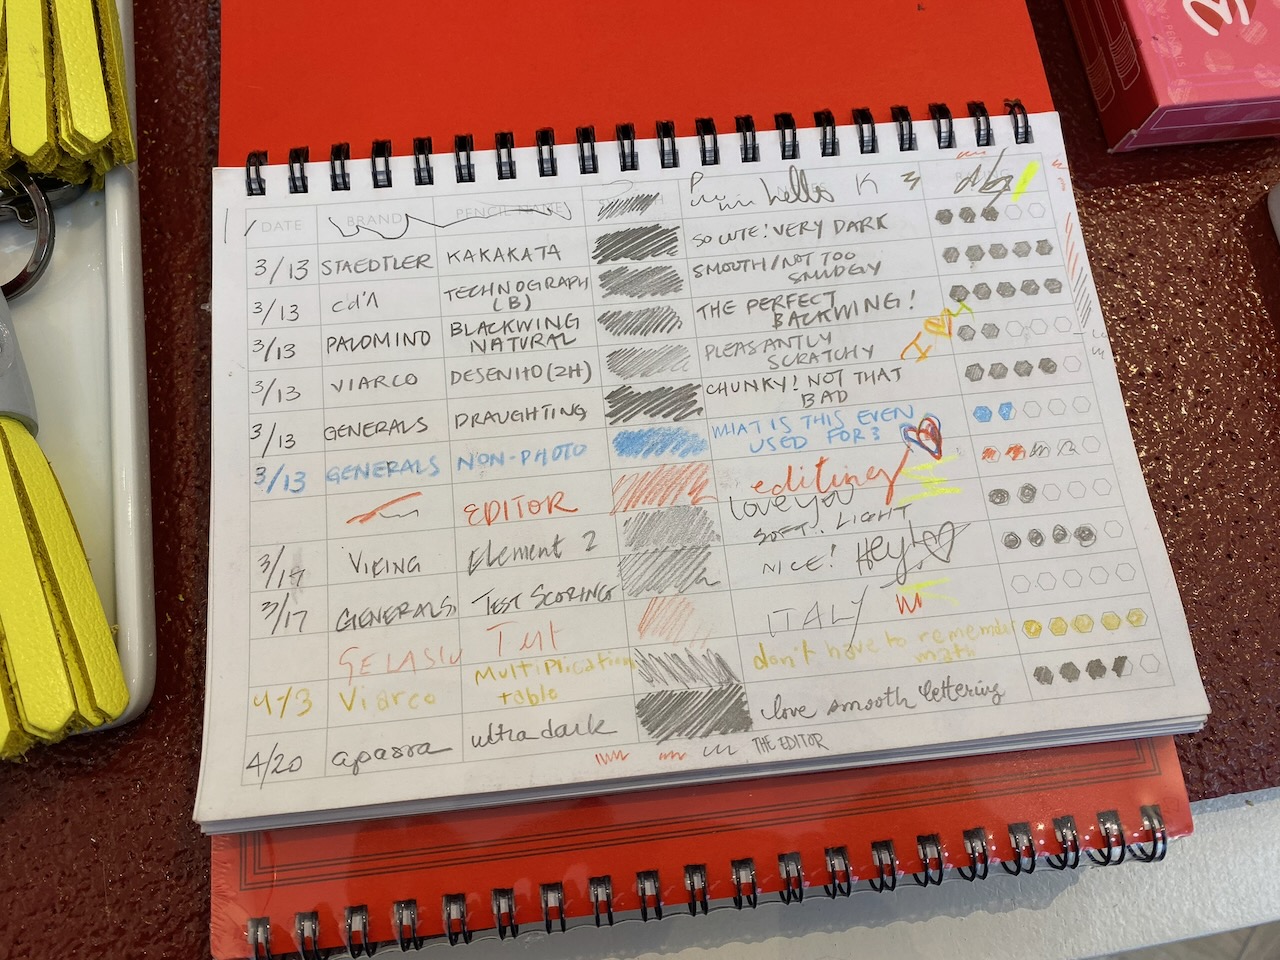 hello K
DATE BRAND PENCIL NAME
3/13 STAEDTLER KAKAKATA SO CUTE! VERY DARK
3/13 cd'A TECHNOGRAPH (B) SMOOTH/NOT TOO SMUDGY
3/13 PALOMINO BLACKWING NATURAL THE PERFECT BACKWING!
3/13 VIARCO DESENHO (2H) PLEASANTLY SCRATCHY
3/13 GENERALS DRAUGHTING CHUNKY! NOT THAT BAD
3/13 GENERALS NON-PHOTO WHAT IS THIS EVEN USED FOR?
EDITOR editing
love you
3/14 VIKING Element 2 SOFT! LIGHT
3/17 GENERALS TEST SCORING NICE! Hey
Test ITALY
4/3 Viarco Multiplication table don't have to remember math
4/20 apsara ultra dark love smooth lettering
THE EDITOR